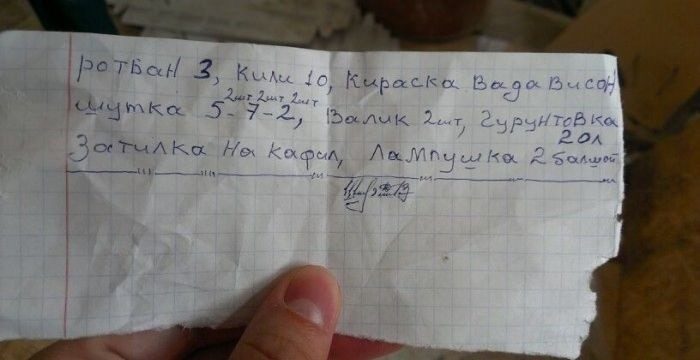 ротБан 3, Кили 10, Кираска Вада Висон
2шт 2шт 2шт
шутка 5-7-2, Валик 2шт, Гурунтовка 20л
Застилка На Кафил, Лампушка 2 балшой